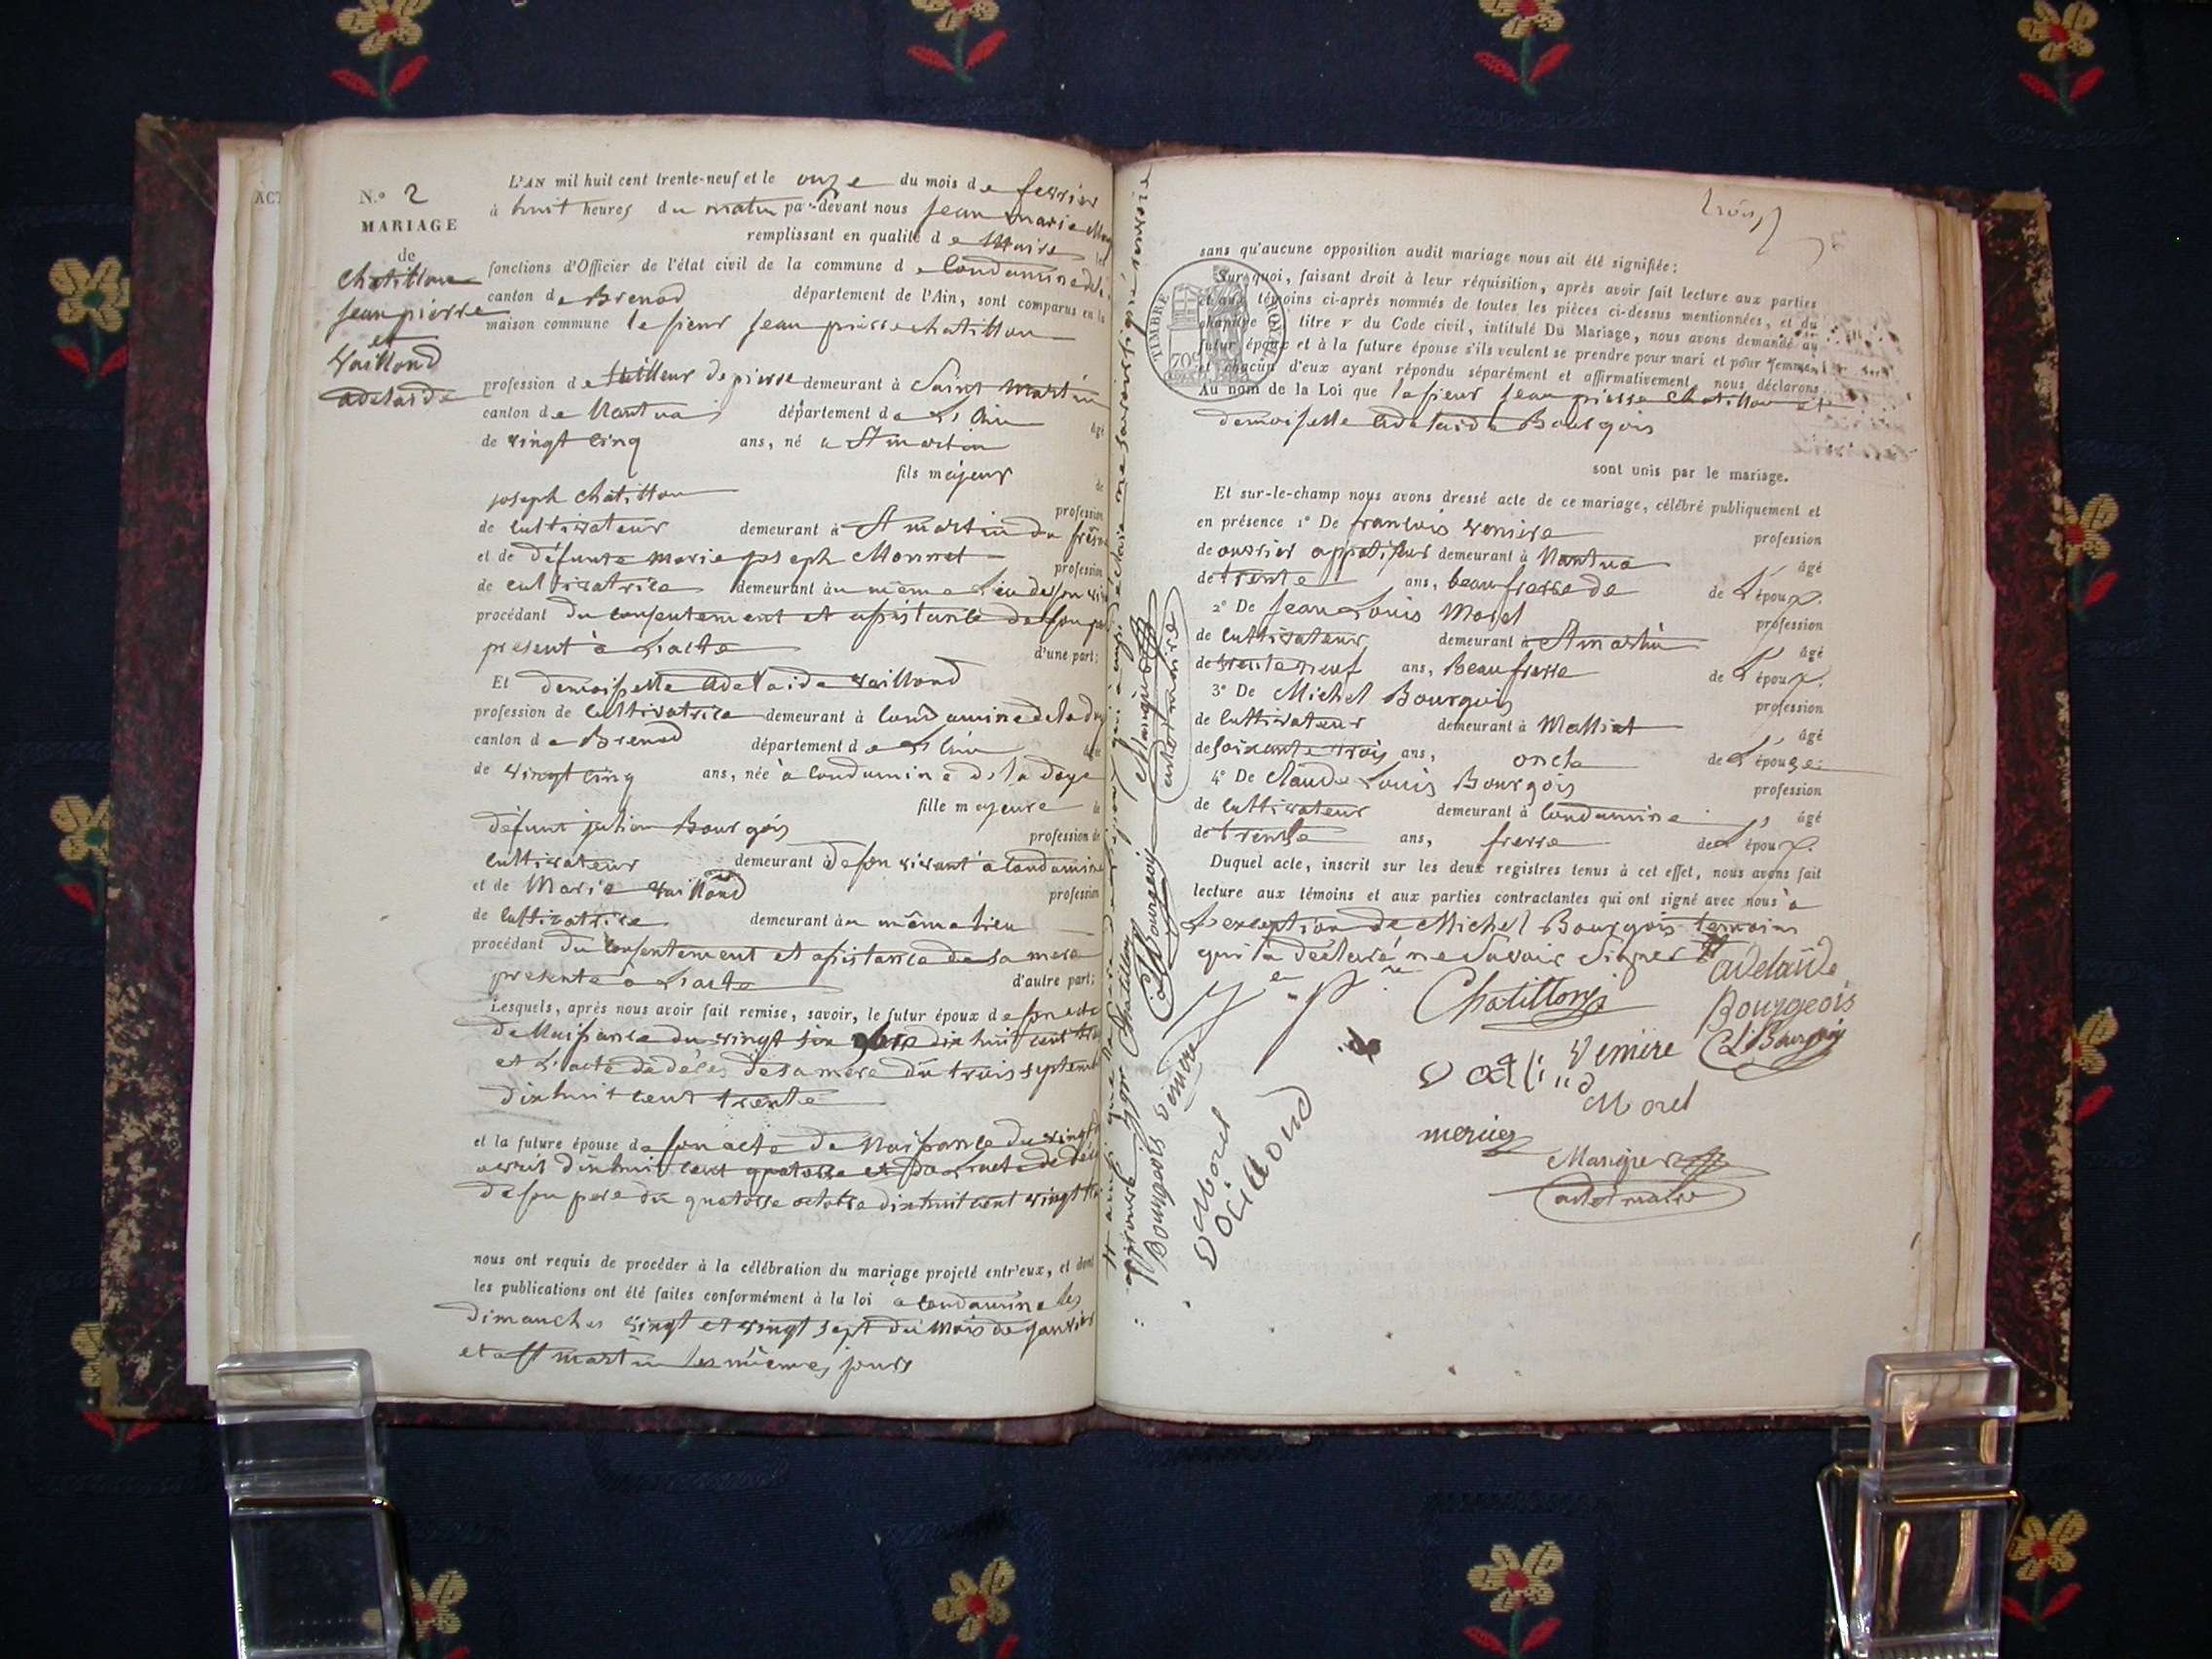 ACT
N.o 2
MARIAGE
de
Chatillon
jean pierre
et
Vaillond
adelaide
L'AN mil huit cent trente-neuf et le onze du mois de fevrier
à huit heures du matin par-devant nous jean marie
remplissant en qualité de Maire les
fonctions d'Officier de l'état civil de la commune de Condamine de la
canton de Brenod département de l'Ain, sont comparus en la
maison commune le sieur jean pierre chatillon
profession de tailleur de pierre demeurant à Saint Martin
canton de Nantua département de L'ain âgé
de vingt cinq ans, né a St martin
fils majeur de
joseph chatillon profession
de cultivateur demeurant à St martin du frêne
et de défunte marie joseph Monnet profession
de cultivatrice demeurant au même Lieu de son viv
procédant du consentement et assistance de son pere
present à L'acte d'une part;
Et demoiselle adelaide vaillond
profession de cultivatrice demeurant à condamine de la doy
canton de Brenod département de L'ain âgée
de vingt cinq ans, née à condamine de la doye
fille majeure de
défunt julien Bourgois profession de
cultivateur demeurant à de son vivant a condamine
et de Marie vaillond profession
de cultivatrice demeurant au même lieu
procédant du consentement et assistance de sa mere
presente à L'acte d'autre part;
Lesquels, après nous avoir fait remise, savoir, le futur époux de son acte
de Naissance du vingt six dix huit cent
et L'acte de décès de sa mère du trois septemb
dix huit cent trente
et la future épouse de son acte de Naissance du vingt
avril dix huit cent quatorze et de L'acte de décès
de son pere du quatorze octobre dix huit cent vingt
nous ont requis de procéder à la célébration du mariage projeté entr'eux, et dont
les publications ont été faites conformément à la loi a condamine les
dimanches vingt et vingt sept du Mois de janvier
et a St martin les mêmes jours
trois
sans qu'aucune opposition audit mariage nous ait été signifiée:
Sur quoi, faisant droit à leur réquisition, après avoir fait lecture aux parties
et aux témoins ci-après nommés de toutes les pièces ci-dessus mentionnées, et du
chapitre titre v du Code civil, intitulé Du Mariage, nous avons demandé au
futur époux et à la future épouse s'ils veulent se prendre pour mari et pour femme
et chacun d'eux ayant répondu séparément et affirmativement, nous déclarons
Au nom de la Loi que le sieur jean pierre chatillon et
demoiselle adelaide Bourgois
sont unis par le mariage.
TIMBRE
70c
Et sur-le-champ nous avons dressé acte de ce mariage, célébré publiquement et
en présence 1o De francois vemire profession
de ouvrier demeurant à Nantua âgé
de trente ans, beau frerre de de L'époux.
2o De jean Louis Morel profession
de cultivateur demeurant à St martin âgé
de trente neuf ans, Beau frerre de L'époux.
3o De Michel Bourgois profession
de cultivateur demeurant à Malliat âgé
de soixante trois ans, oncle de L'épouse.
4o De Claude Louis Bourgois profession
de cultivateur demeurant à condamine âgé
de trente ans, frerre de L'époux.
Duquel acte, inscrit sur les deux registres tenus à cet effet, nous avons fait
lecture aux témoins et aux parties contractantes qui ont signé avec nous à
L'exception de Michel Bourgois temoins
qui a déclaré ne savoir signer
Chatillon
adelaïde
Bourgeois
vemire
CLBourgois
Morel
mercier
Marigue
adjt maire
approuvé
Chatillon
Bourgeois
vemire
CLBourgeois
Morel